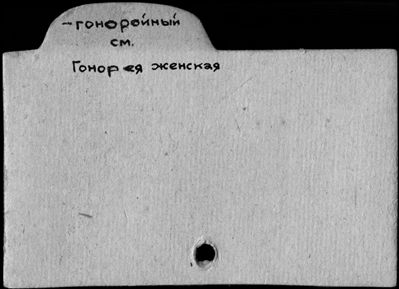 -гонорейный
см.
Гонорея женская